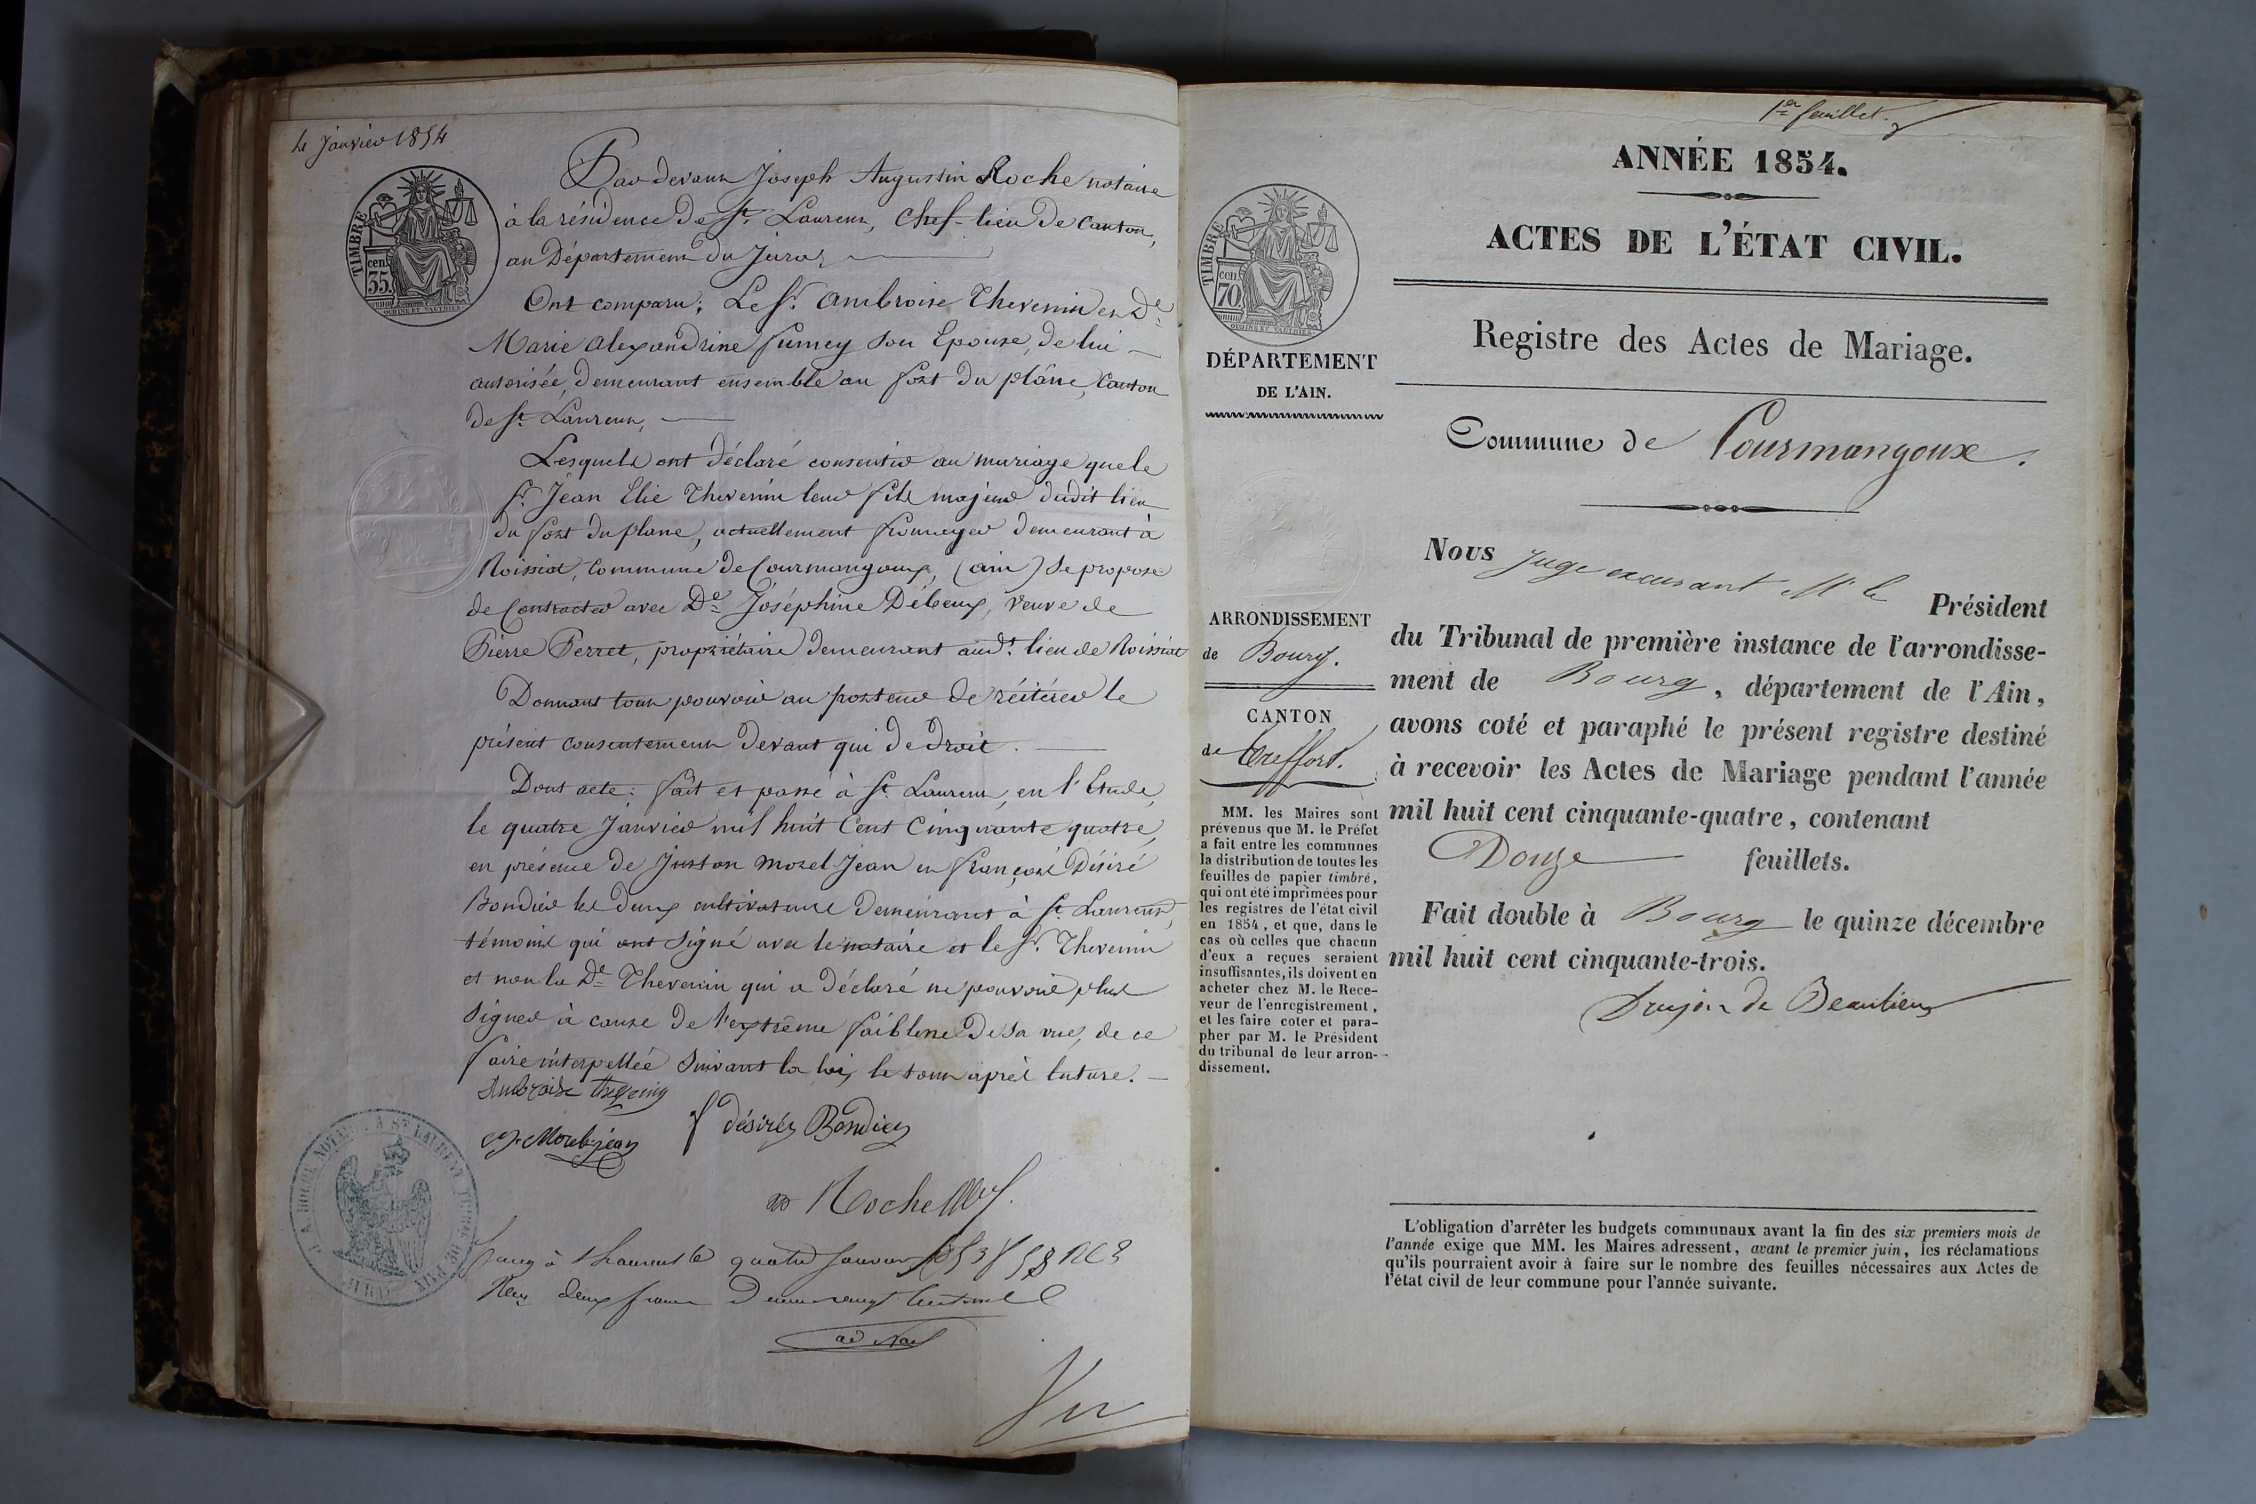 4 janvier 1854
TIMBRE
cen.
35.
Par devant Joseph Augustin Roche notaire
à la résidence de St. Laurent, Chef-lieu de Canton,
au Département du Jura,
Ont comparu; Le Sr. Ambroise Thevenin et De.
Marie Alexandrine Jumey son Epouse, de lui
autorisée, demeurant ensemble au fort du plâne, Canton
de St. Laurent,
Lesquels ont déclaré consentir au mariage que le
Sr. Jean Elie Thevenin leur fils majeur dudit lieu
du fort du plane, actuellement fromager demeurant à
Roissiat, Commune de Courmangoux, (ain) se propose
de Contracter avec De. Joséphine Débeux, veuve de
Pierre Perret, propriétaire demeurant audt. lieu de Roissiat
Donnant tout pouvoir au porteur de réitérer le
présent consentement devant qui de droit.
Dont acte: fait et passé à St. Laurent, en l'Etude,
le quatre Janvier mil huit Cent Cinquante quatre,
en présence de Juston Morel Jean et françois Désiré
Bondier les deux cultivateurs demeurant à St. Laurent,
témoins qui ont signé avec le notaire et le Sr. Thevenin
et non la De. Thevenin qui a déclaré ne pouvoir plus
signer à cause de l'extrême faiblesse de sa vue, de ce
faire interpellée suivant la loi, le tout après lecture.
Ambroise thevenin
Morel-jean
f désiré Bondier
Roche
à St Laurent le quatre Janvier
deux francs centimes
Vu
1er feuillet.
ANNÉE 1854.
ACTES DE L'ÉTAT CIVIL.
Registre des Actes de Mariage.
Commune de Courmangoux.
TIMBRE
cen.
70
DÉPARTEMENT
DE L'AIN.
ARRONDISSEMENT
de Bourg.
CANTON
de Treffort.
MM. les Maires sont
prévenus que M. le Préfet
a fait entre les communes
la distribution de toutes les
feuilles de papier timbré,
qui ont été imprimées pour
les registres de l'état civil
en 1854, et que, dans le
cas où celles que chacun
d'eux a reçues seraient
insuffisantes, ils doivent en
acheter chez M. le Rece-
veur de l'enregistrement,
et les faire coter et para-
pher par M. le Président
du tribunal de leur arron-
dissement.
Nous Juge excusant Mr le Président
du Tribunal de première instance de l'arrondisse-
ment de Bourg, département de l'Ain,
avons coté et paraphé le présent registre destiné
à recevoir les Actes de Mariage pendant l'année
mil huit cent cinquante-quatre, contenant
Douze feuillets.
Fait double à Bourg le quinze décembre
mil huit cent cinquante-trois.
Dujon de Beaulieu
L'obligation d'arrêter les budgets communaux avant la fin des six premiers mois de
l'année exige que MM. les Maires adressent, avant le premier juin, les réclamations
qu'ils pourraient avoir à faire sur le nombre des feuilles nécessaires aux Actes de
l'état civil de leur commune pour l'année suivante.